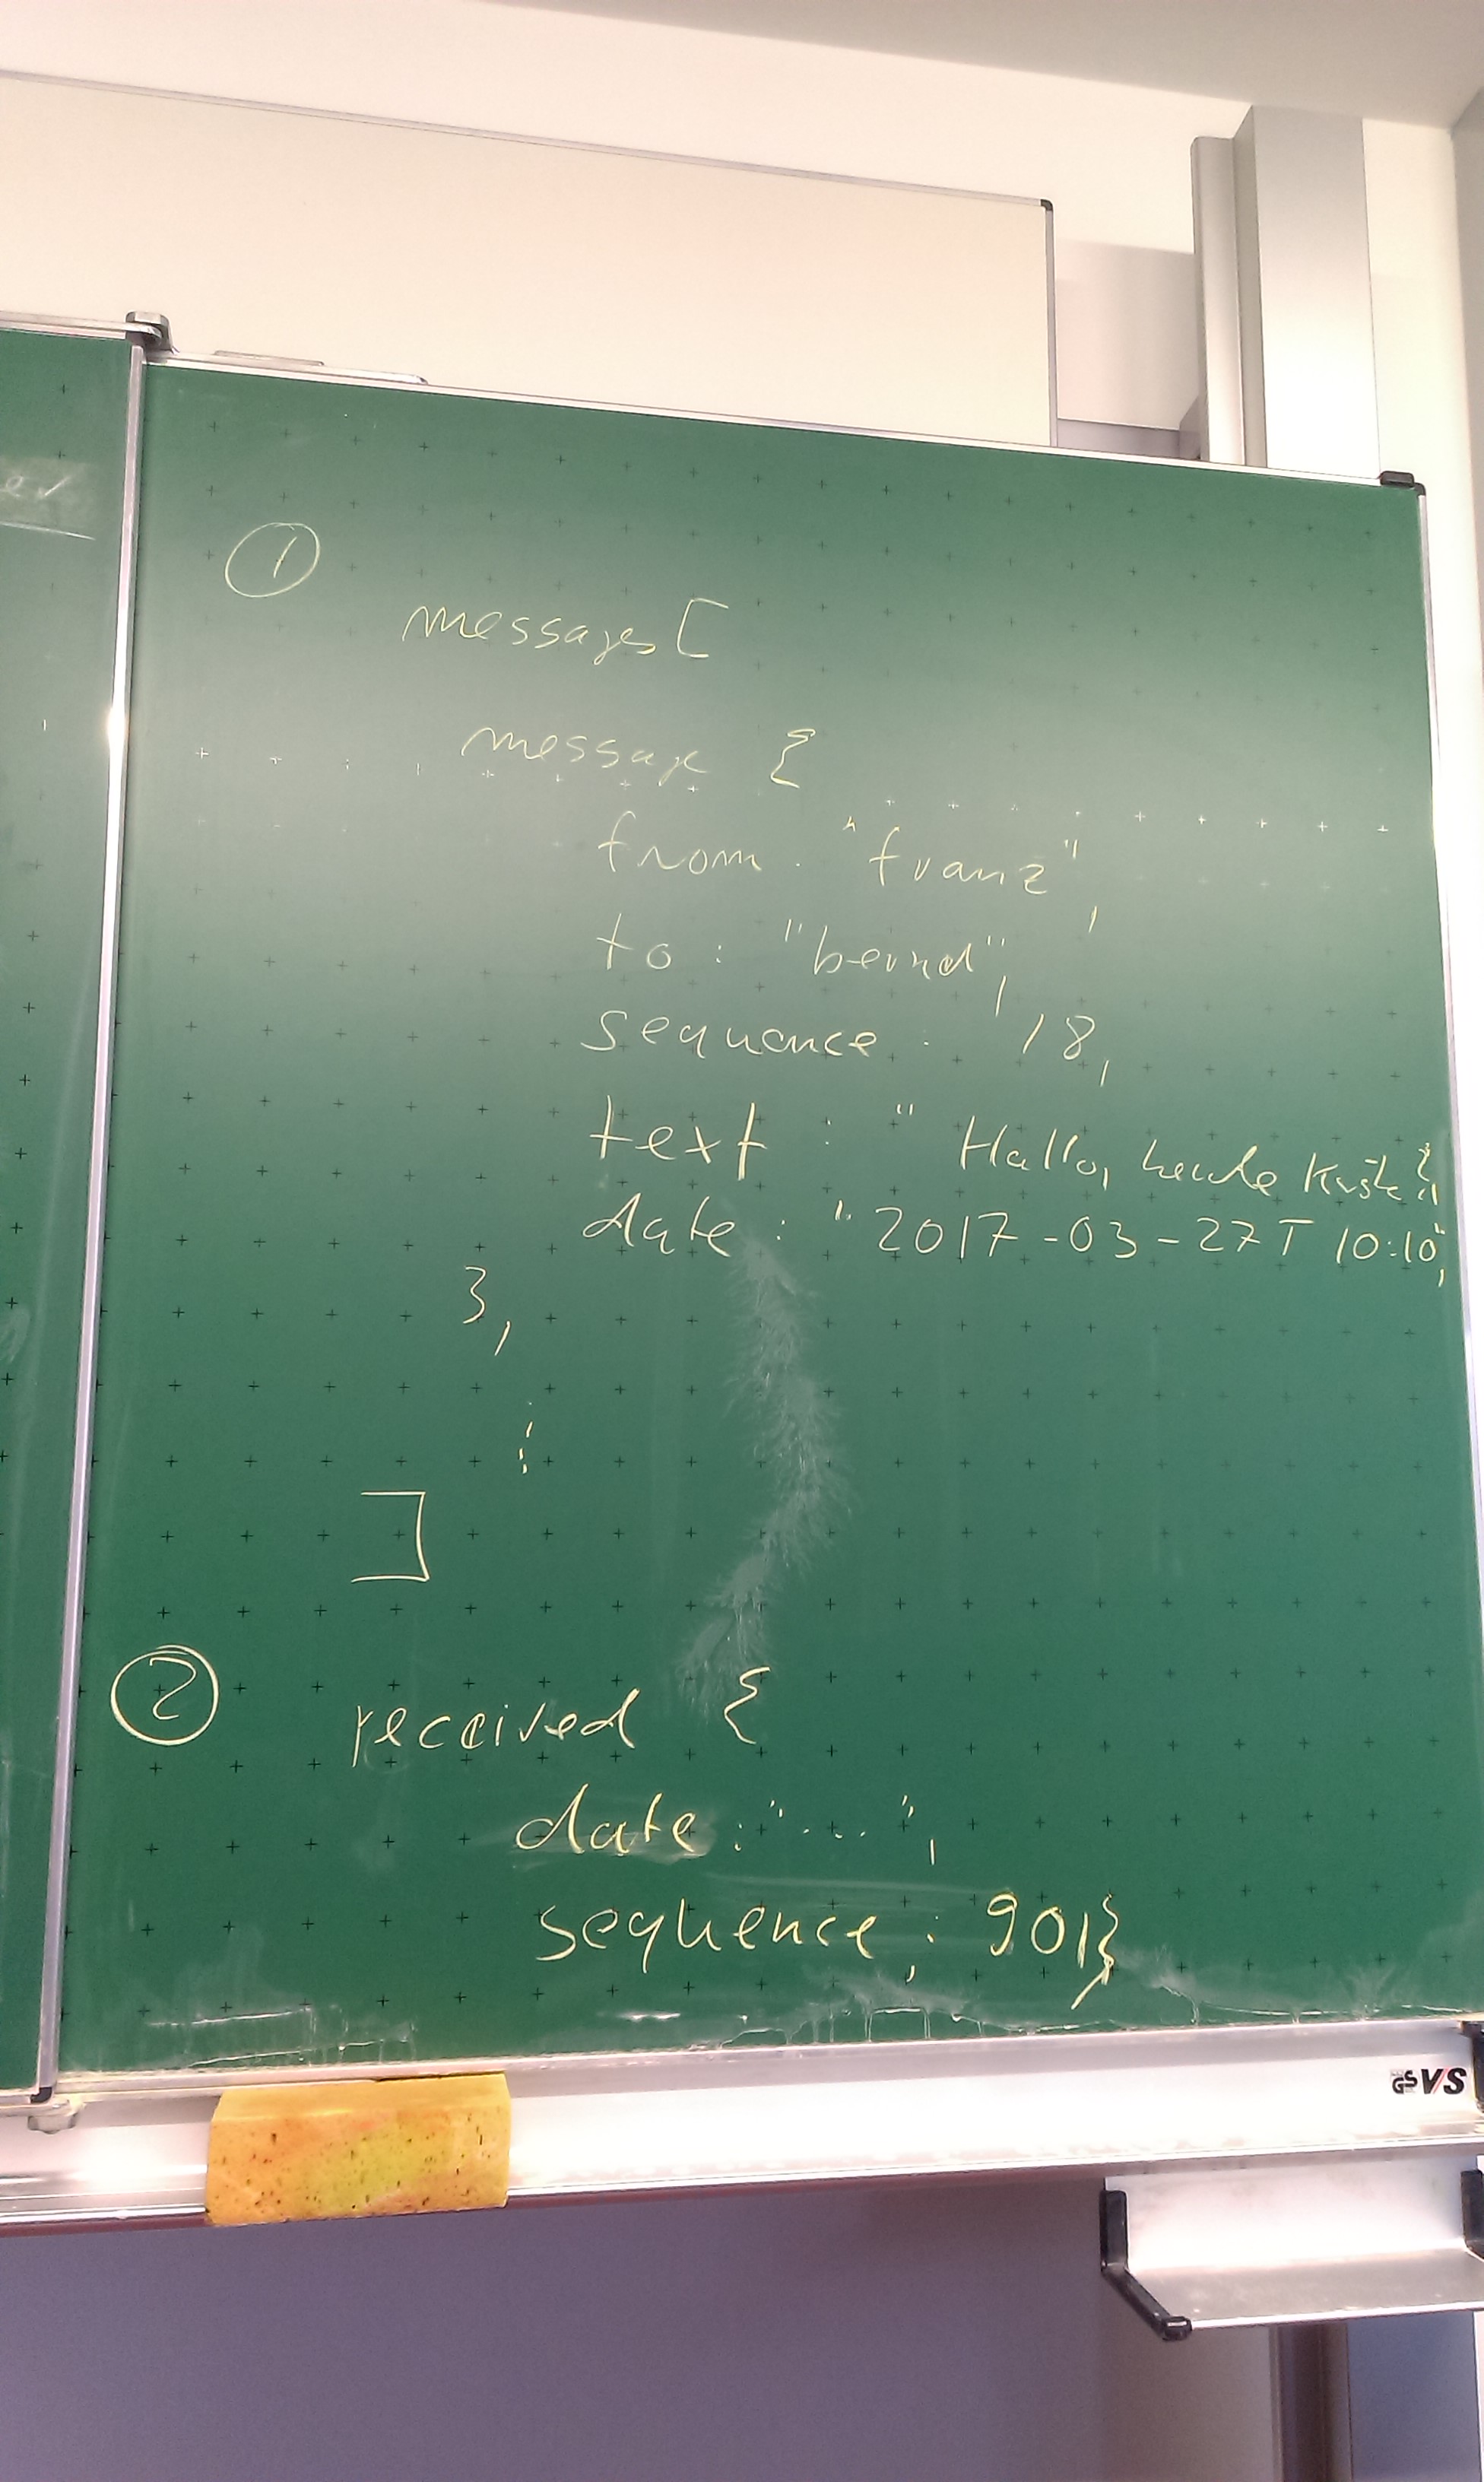 ①
messages [
message {
from : "franz",
to : "bernd",
sequence : 18,
text : " Hallo, heute
date : "2017-03-27T 10:10",
},
⋮
]
②
received {
date : "...",
sequence : 901}
GS VS